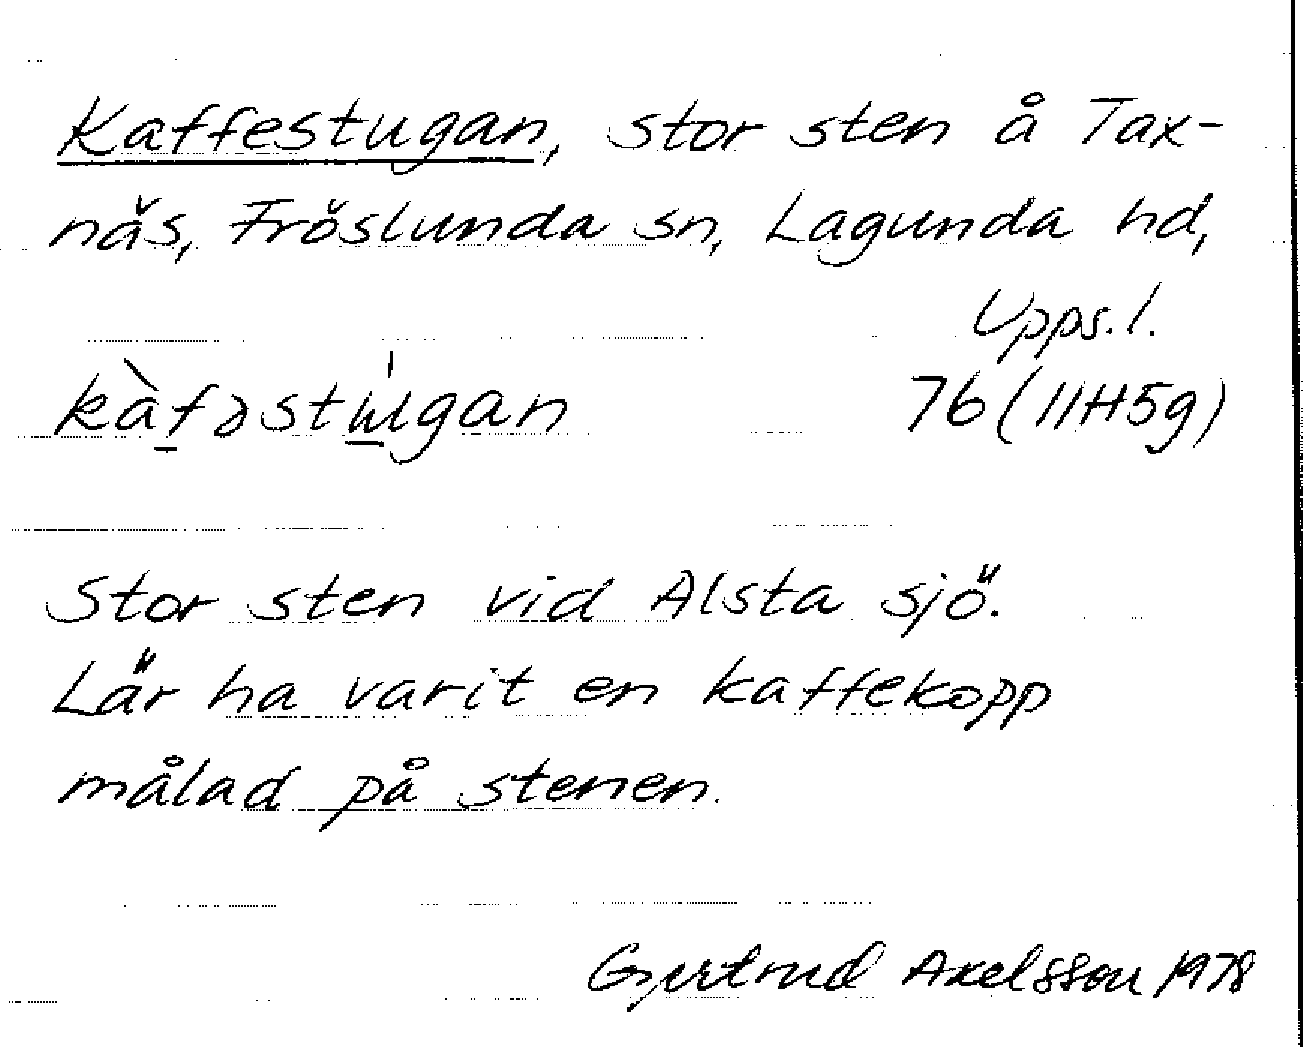 Kaffestugan, stor sten å Tax-
näs, Fröslunda sn, Lagunda hd,
Upps. l.
kàf̠əstɯ̠́gan 76 (11H5g)
Stor sten vid Alsta sjö.
Lär ha varit en kaffekopp
målad på stenen.
Gertrud Axelsson 1978